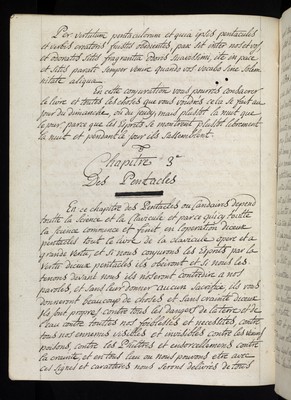 Per virtutem pentaculorum et quia ipsis pentaculis
et verbis omnibus fuistis obedientes, pax sit inter nos et vos
et odorati sitis fragrantia odoris suavissimi, ite in pace
et sitis parati semper venire quando vos vocabo sine solem
nitate aliqua.
En cette conjuration vous pourrés consacrer
le livre et touttes les choses que vous voudrés cela se faut au
jour du dimanche ou du jeudy mais plustôt la nuit que
le jour parce que les Esprits se montrent plustôt librement
la nuit et pendant le jour ils
Chapitre 3e
Des Pentacles
En ce chapitre des Pentacles ou Candaires depend
toutte la science et la Clavicule et parce qu'icy toutte
la science commence et finit en l'operation
pentacles tout le livre de la clavicule opere et a
grande vertu, et si nous conjurons les Esprits par la
vertu deceux pentacles ils obeiront et si nous les
tenons devant nous ils n'oseront contredire a nos
paroles, et sans leur donner aucun sacrifice ils vous
donneront beaucoup de choses et sans crainte deceux
ils sont propres contre tous les dangers de la terre et de
l'eau contre touttes nos foiblesses et necessités contre
tous nos ennemis visibles et invisibles contre les
poisons, contre les Philtres et ensorcellemens contre
la crainte, et en tous lieu ou nous pouvons etre avec
ces signes et caracteres nous serons delivrés de tous